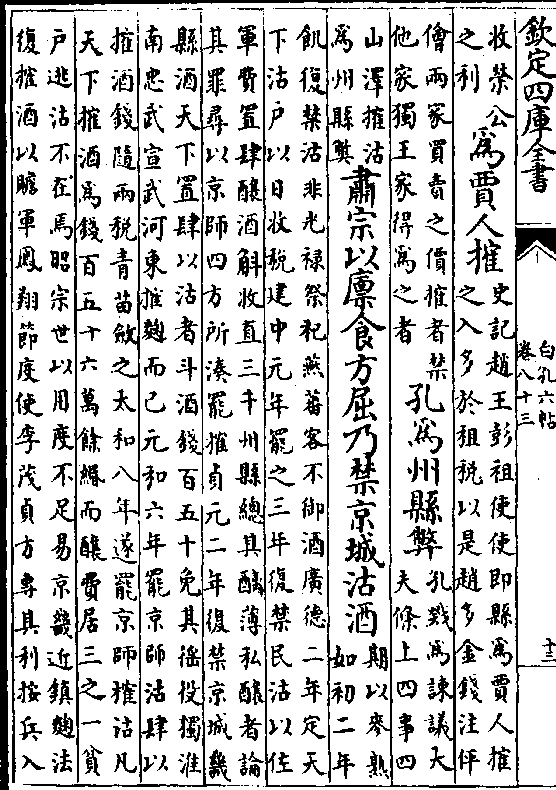 欽定四庫全書
白孔六帖
卷八十三
十三
收榮公
之利
為賈人榷
史記趙王彭祖使使即縣為賈人榷
之入多於租稅以是趙多金錢注伻
儈兩家買賣之價榷者禁
他家獨王家得為之者
孔為州縣弊
孔戣為諫議大
夫條上四事四
山澤榷沽
為州縣弊
肅宗以廩食方屈乃禁京城沽酒
期以麥熟
如初二年
飢復禁沽非光祿祭祀燕蕃客不御酒廣德二年定天
下沽户以日收稅建中元年罷之三年復禁民沽以佐
軍費置肆釀酒斛收直三千州縣總其酤薄私釀者論
其罪尋以京師四方所湊罷榷貞元二年復禁京城畿
縣酒天下置肆以沽者斗酒錢百五十免其徭役獨淮
南忠武宣武河東榷麴而已元和六年罷京師沽肆以
榷酒錢隨兩稅青苗斂之太和八年遂罷京師榷沽凡
天下榷酒為錢百五十六萬餘緡而釀費居三之一貧
户逃沽不在焉昭宗世以用度不足易京畿近鎮麴法
復榷酒以贍軍鳳翔節度使李茂貞方專其利按兵入